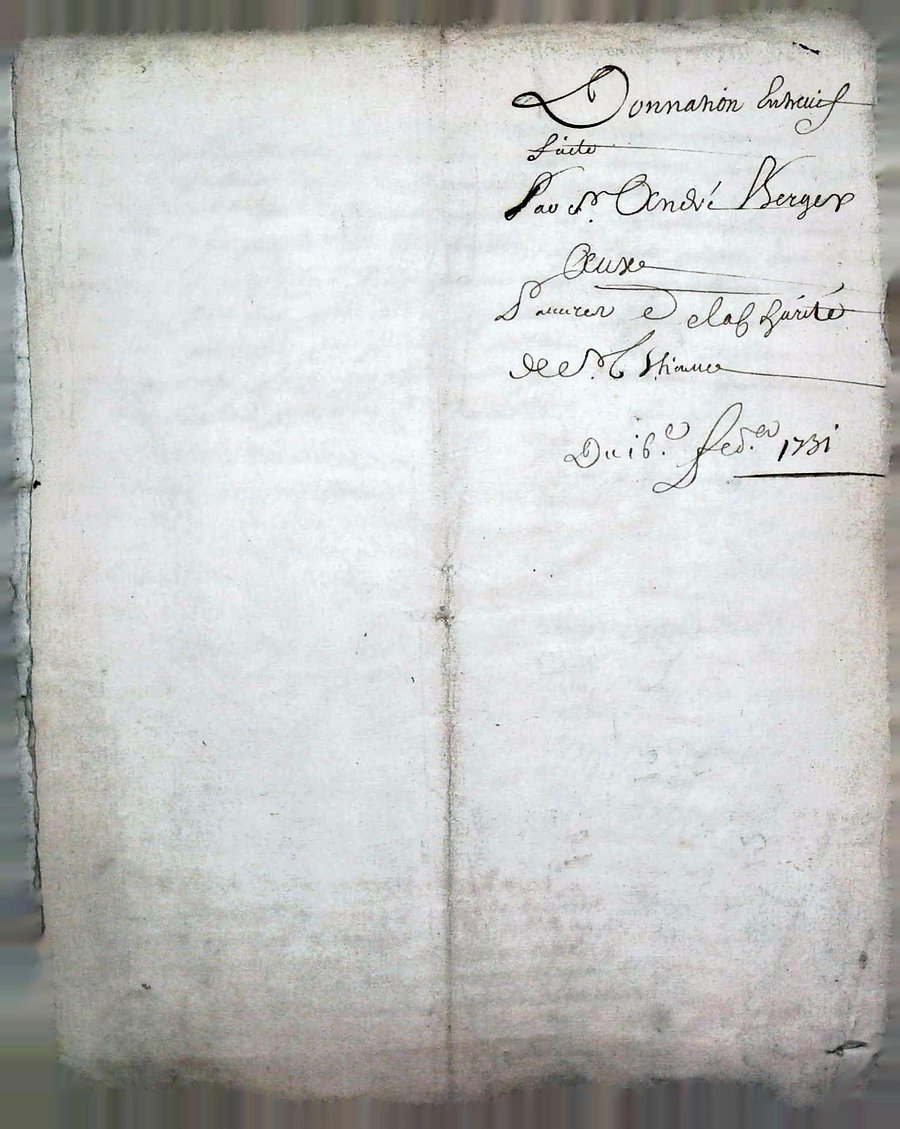 Donnation Entreuifs
faite
Par Sr. André Berger
Aux
Pauvres de la Charité
de St. Etienne
Du 16.e fed.er 1731